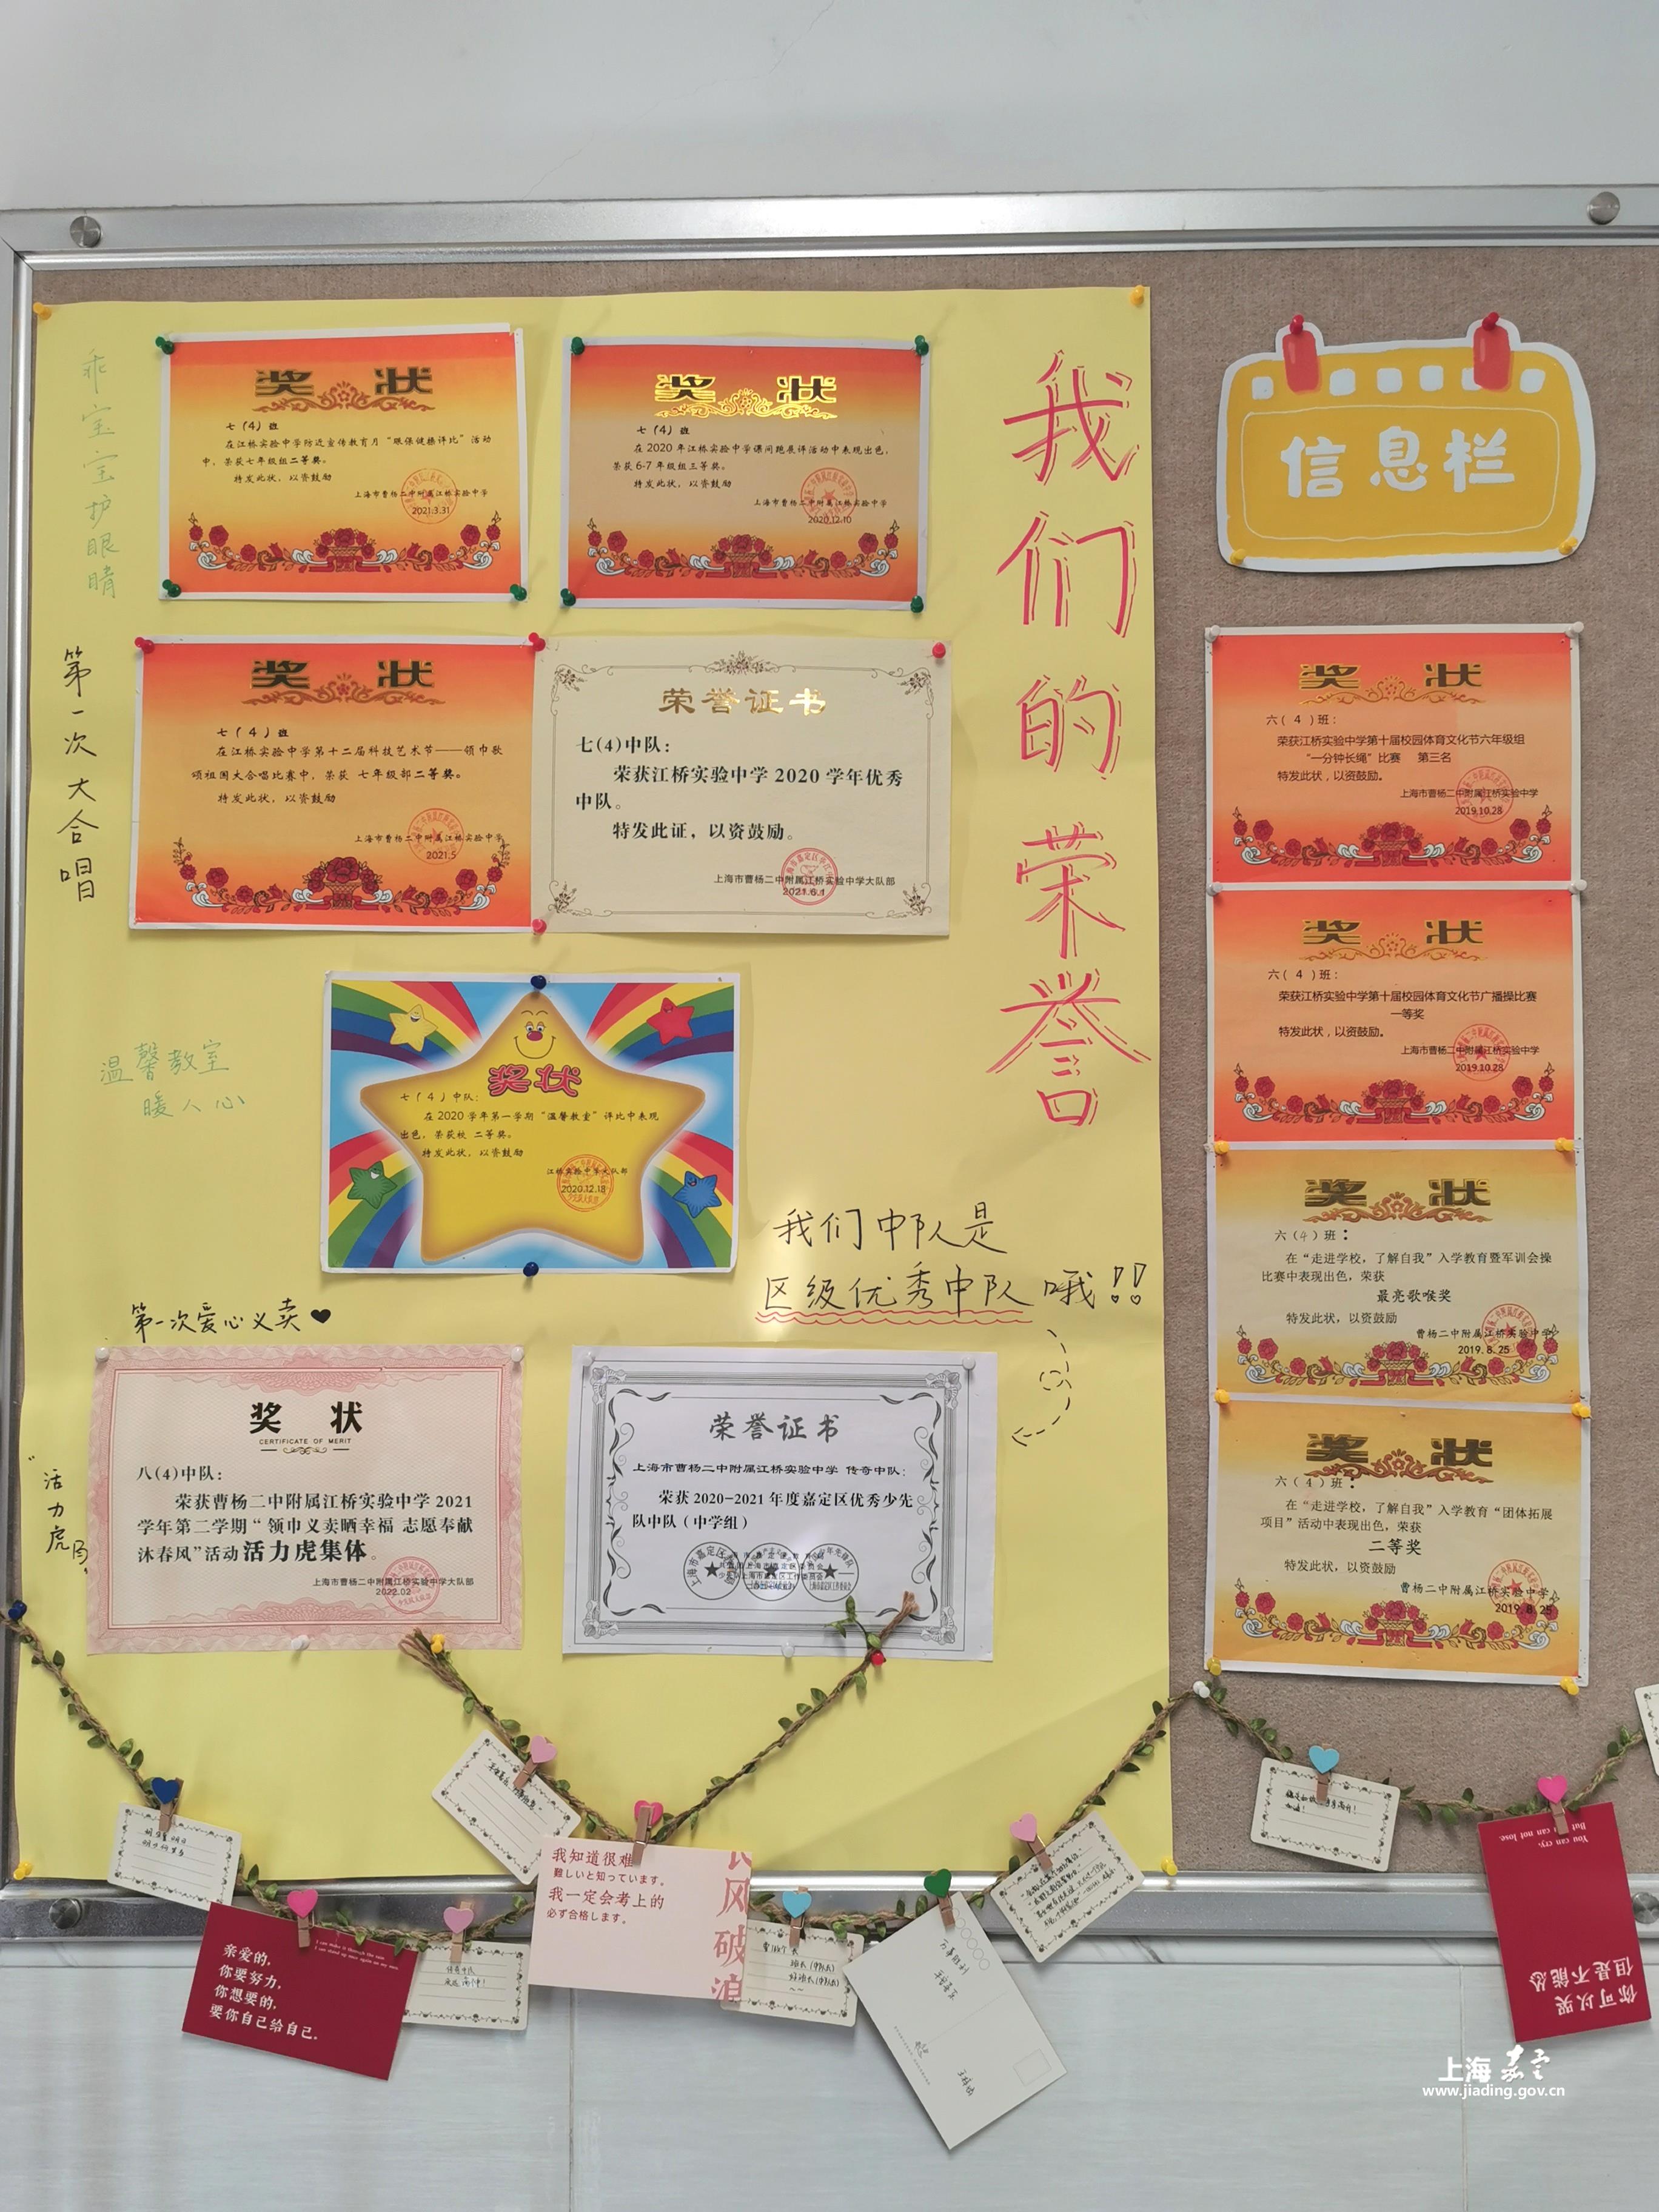 乖宝宝护眼睛
奖 状
七（4）班
在江桥实验中学防近宣传教育月“眼保健操评比”活动
中，荣获七年级组二等奖。
特发此状，以资鼓励
上海市曹杨二中附属江桥实验中学
2021.3.31
奖 状
七（4）班
在2020年江桥实验中学课间跑展评活动中表现出色，
荣获6-7年级组三等奖。
特发此状，以资鼓励
上海市曹杨二中附属江桥实验中学
2020.12.10
我们的荣誉
第一次大合唱
奖 状
七（4）班
在江桥实验中学第十二届科技艺术节——领巾歌
颂祖国大合唱比赛中，荣获 七年级部二等奖。
特发此状，以资鼓励
上海市曹杨二中附属江桥实验中学
2021.5
荣誉证书
七(4)中队：
荣获江桥实验中学2020学年优秀
中队。
特发此证，以资鼓励。
上海市曹杨二中附属江桥实验中学大队部
2021.6.1
温馨教室
暖人心
奖状
七（4）中队：
在2020学年第一学期“温馨教室”评比中表现
出色，荣获校 二等奖。
特发此状，以资鼓励
江桥实验中学大队部
2020.12.18
我们中队是
区级优秀中队哦!!
第一次爱心义卖♥
“活力虎
奖 状
CERTIFICATE OF MERIT
八(4)中队：
荣获曹杨二中附属江桥实验中学2021
学年第二学期“领巾义卖晒幸福 志愿奉献
沐春风”活动活力虎集体。
上海市曹杨二中附属江桥实验中学大队部
2022.02
荣誉证书
上海市曹杨二中附属江桥实验中学 传奇中队：
荣获2020-2021年度嘉定区优秀少先
队中队（中学组）
信息栏
奖 状
六（4）班：
荣获江桥实验中学第十届校园体育文化节六年级组
“一分钟长绳”比赛 第三名
特发此状，以资鼓励。
上海市曹杨二中附属江桥实验中学
2019.10.28
奖 状
六（4）班：
荣获江桥实验中学第十届校园体育文化节广播操比赛
一等奖
特发此状，以资鼓励。
上海市曹杨二中附属江桥实验中学
2019.10.28
奖 状
六（4）班：
在“走进学校，了解自我”入学教育暨军训会操
比赛中表现出色，荣获
最亮歌喉奖
特发此状，以资鼓励
曹杨二中附属江桥实验中学
2019.8.25
奖 状
六（4）班：
在“走进学校，了解自我”入学教育“团体拓展
项目”活动中表现出色，荣获
二等奖
特发此状，以资鼓励
曹杨二中附属江桥实验中学
2019.8.25
亲爱的，
你要努力，
你想要的，
要你自己给自己.
I can make it through the rain
I can stand up once again on my own.
我知道很难
難しいと知っています。
我一定会考上的
必ず合格します。
风破浪
万事胜利
You can cry,
But can not lose.
你可以哭
但是不能怂
上海嘉定
www.jiading.gov.cn